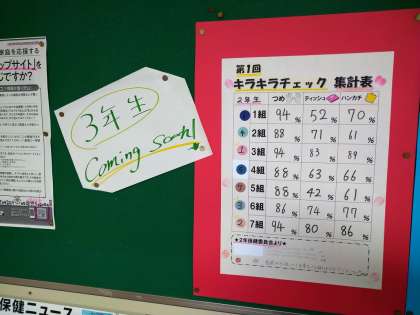 家庭を応援する
ップサイト」を
じですか?
3年生
Coming soon!
第1回
キラキラチェック 集計表
2年生 つめ ティッシュ ハンカチ
1組 94% 52% 70%
2組 88% 71% 61%
3組 94% 83% 89%
4組 88% 63% 66%
5組 88% 42% 61%
6組 86% 74% 77%
7組 94% 80% 86%
★2年保健委員会より★
保健ニュース